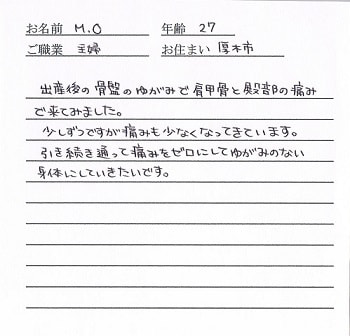 お名前 M.O 年齢 27
ご職業 主婦 お住まい 厚木市
出産後の骨盤のゆがみで肩甲骨と臀部の痛み
で来てみました。
少しずつですが痛みも少なくなってきています。
引き続き通って痛みをゼロにしてゆがみのない
身体にしていきたいです。